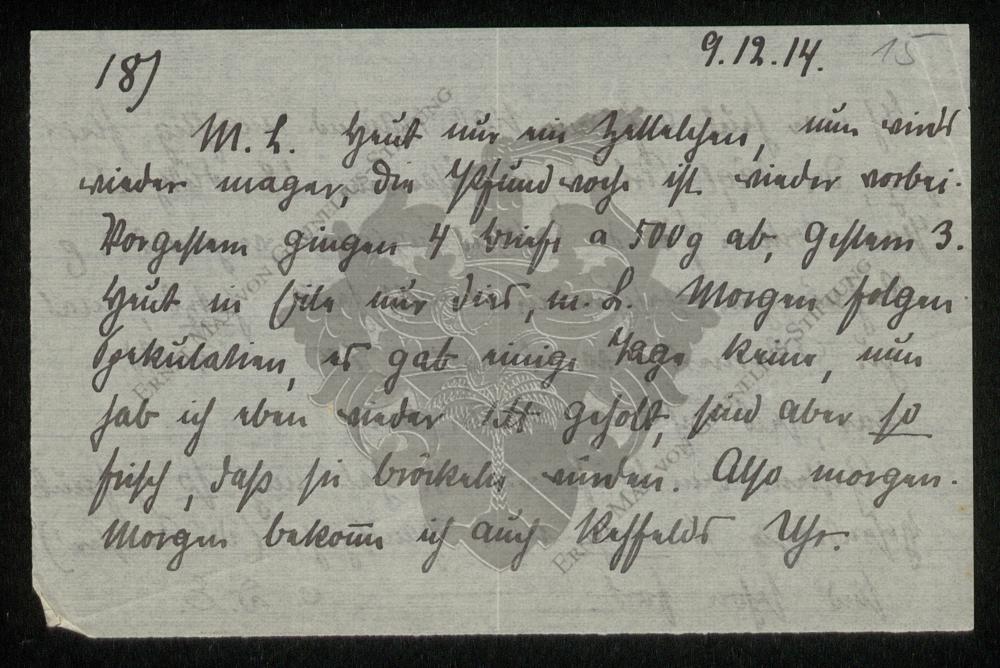 18) 9.12.14. 15
M. L. Heut nur ein Zettelchen, nun wirds
wieder mager, die Pfundwoche ist wieder vorbei.
Vorgestern gingen 4 Briefe a 500g ab, gestern 3.
Heut in Eile nur dies, m. L. Morgen folgen
Spekulatien, es gab einige Tage keine, nun
hab ich eben wieder geholt, sind aber so
frisch, daß sie bröckeln würden. Also morgen.
Morgen bekom̅e ich auch Uhr.
ERNST MAX VON GRUNELIUS-STIFTUNG
ERNST MAX VON GRUNELIUS-STIFTUNG